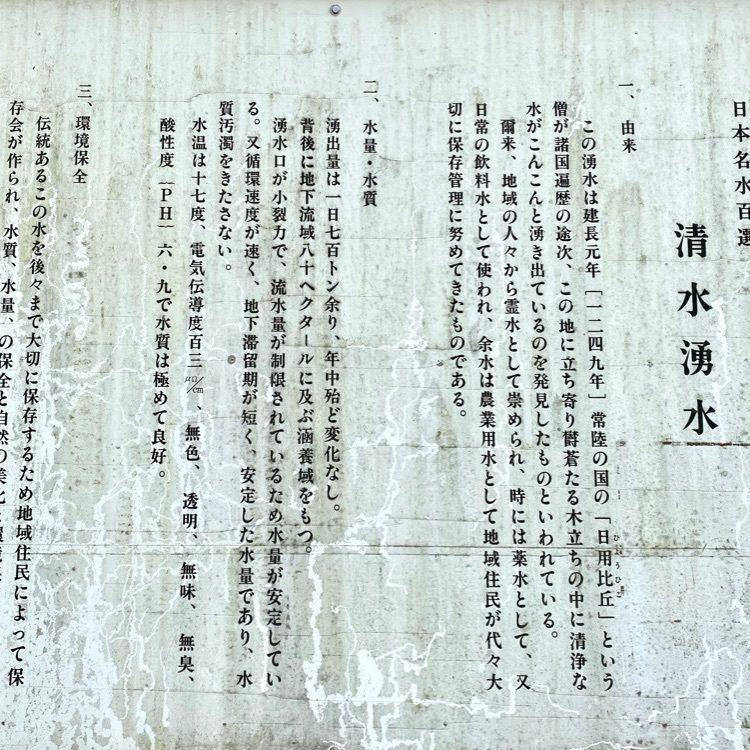 日本名水百選
清水湧水
一、由来
この湧水は建長元年［一二四九年］常陸の国の「日用比丘」という
僧が諸国遍歴の途次、この地に立ち寄り欝蒼たる木立ちの中に清浄な
水がこんこんと湧き出ているのを発見したものといわれている。
爾来、地域の人々から霊水として崇められ、時には薬水として、又
日常の飲料水として使われ、余水は農業用水として地域住民が代々大
切に保存管理に努めてきたものである。
二、水量・水質
湧出量は一日七百トン余り、年中殆ど変化なし。
背後に地下流域八十ヘクタールに及ぶ涵養域をもつ。
湧水口が小裂力で、流水量が制限されているため水量が安定してい
る。又循環速度が速く、地下滞留期が短く、安定した水量であり、水
質汚濁をきたさない。
水温は十七度、電気伝導度百三μΩ/cm、無色、透明、無味、無臭、
酸性度［PH］六・九で水質は極めて良好。
三、環境保全
伝統あるこの水を後々まで大切に保存するため地域住民によって保
存会が作られ、水質、水量、の保全と自然の美化